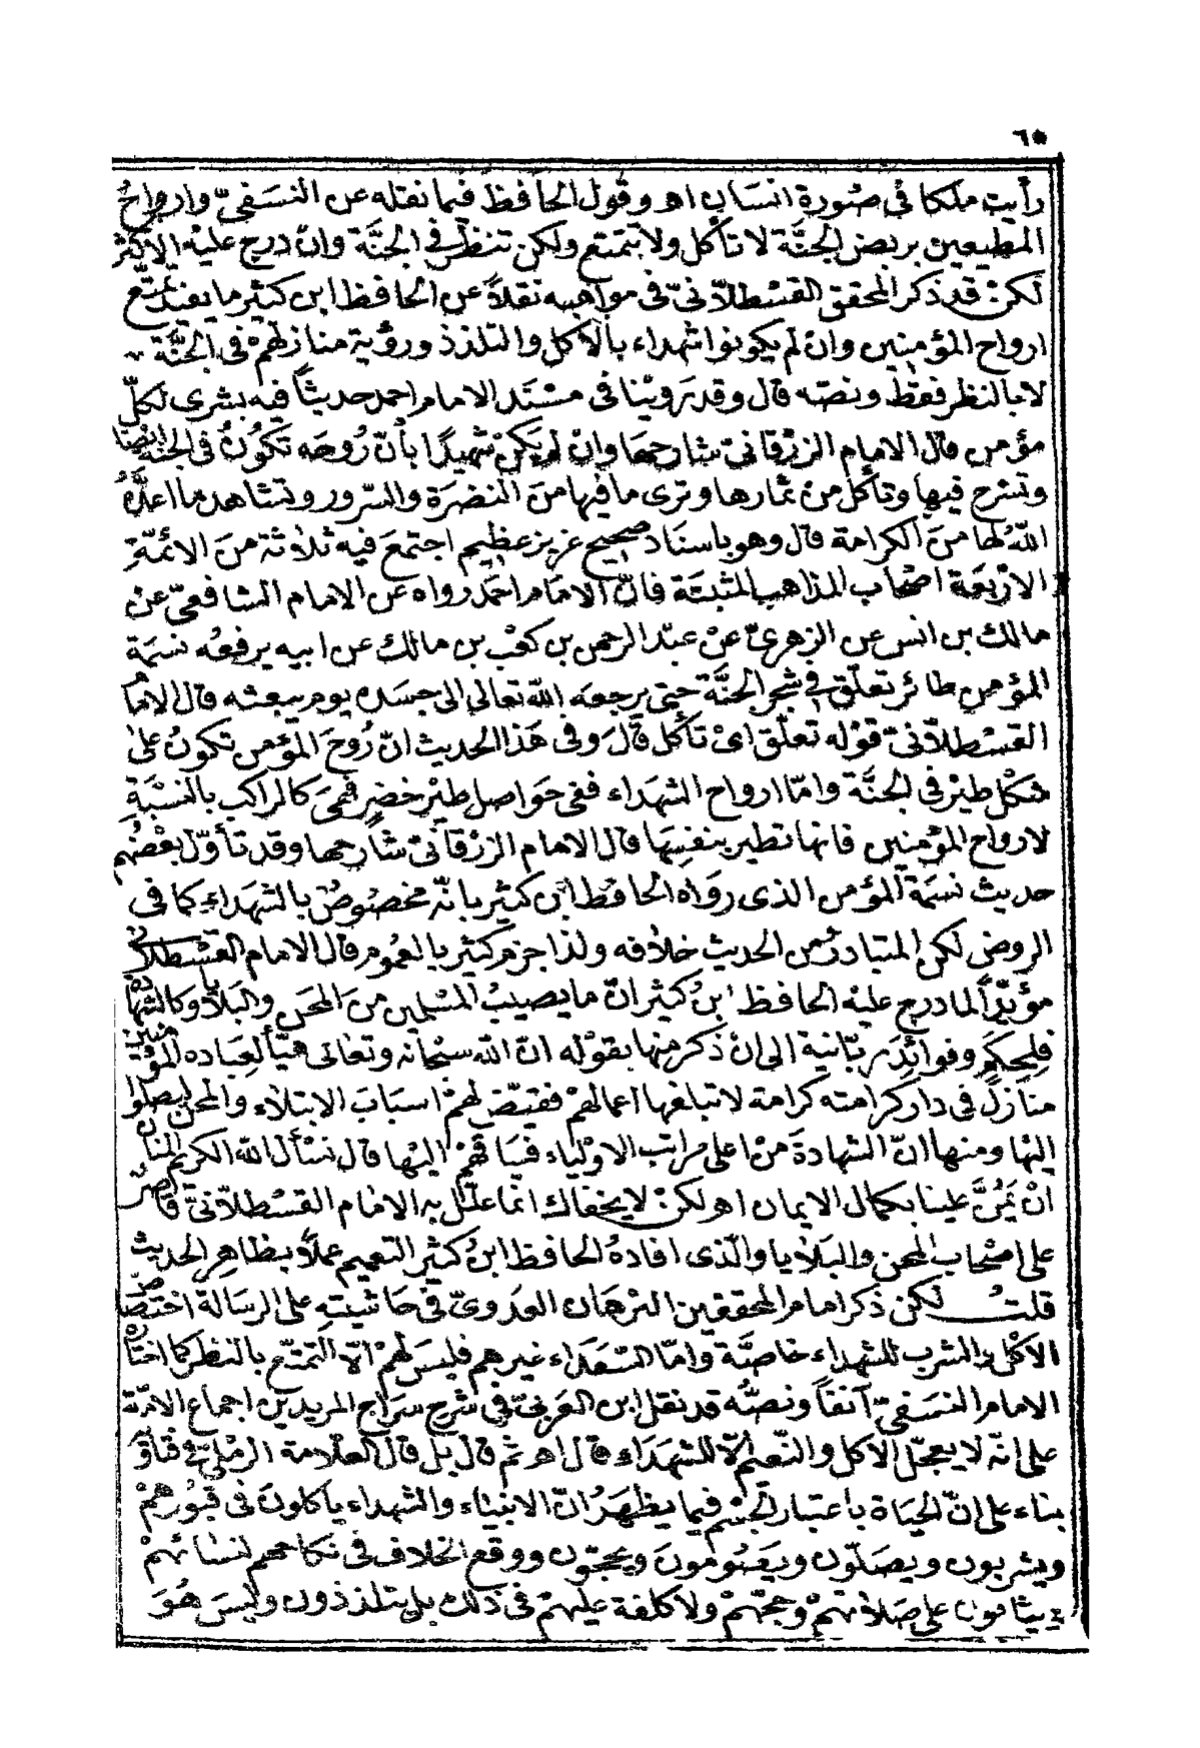 ٦٥
رأيت ملكا في صُورة انسان اهـ وقول الحافظ فيما نقله عن النسَفيّ وارواحُ
المطيعين بربض الجنَّة لا تأكل ولا تتمتع ولكن تنظر في الجنَّة وانْ درج عليْه الاكثر
لكنْ قد ذكر المحقق القسْطلّانىّ فى مواهبه نقلاً عن الحافظ ابن كثير ما يفيد تمتّع
ارواح المؤمنين وانْ لم يكونوا شهداء بالأكل والتلذذ ورؤية منازلهمْ فى الجنَّة
لا بالنظر فقط ونصّه قال وقد رَويْنا فى مسْنَد الامام احمد حديثاً فيه بشرى لكلّ
مؤمن قال الامام الزرْقانىّ شارحها وانْ لم يكنْ شهيدًا بأنّ رُوحَه تكُونُ فى الجنَّة ايضًا
وتسْرح فيها وتأكل منْ ثمارها وترى ما فيها منَ النضرَة والسّرور وتشاهد ما اعدَّهُ
اللّهُ لها منَ الكرامة قال وهو باسنَاد صحيح عزيز عظيم اجتمعَ فيه ثلاثة منَ الائمّةِ
الارْبعَة اصْحاب المذاهب المتبَعَة فانّ الامَام احمَد رواه عن الامام الشافعىّ عن
مالك بن انس عن الزهرىّ عنْ عبْد الرحمن بن كعْب بن مالك عن ابيه يرفعُه نسَمَة
المؤمن طائر تعلّق فى شجر الجنَّة حتى يرجعه اللّه تعالى الى جسَده يوم يبعثه قال الامام
القسْطلّانىّ قوْله تعلّق اىْ تأكل قالَ وفى هَذا الحديث انّ رُوحَ المؤمن تكونُ على
شكْل طيْر فى الجنَّة وامّا ارواح الشهَداء ففى حَواصل طيْر خضرٍ فهىَ كالراكب بالنسْبَةِ
لارواح المؤمنين فانها تطير بنفسِهَا قال الامام الزرْقانىّ شارحها وقد تأوّل بعْضُهم
حديث نسَمَة المؤمن الذى روَاه الحافظ ابن كثير بانّه مخصُوصٌ بالشهَداءِ كما فى
الروض لكن المتبادرُ من الحديث خلافه ولذا جزم كثير بالعُموم قال الامام القسْطلانى
مؤيّداً لما درج عليْه الحافظ ابنُ كثير انّ ما يصيبُ المسْلمين منَ المحَن والبَلَايا وكالشهَادة
فلِحِكَمٍ وفوائدَ ربّانية الى انْ ذكر منها بقوْله انّ اللّه سبْحانه وتعالى هيّأ لعباده المؤمنين
منازلَ فى دار كرامته كرامة لا تبلغها اعمالهمْ فقيّض لهمْ اسبَابَ الابتلاء والمحن ليصلوا
اليْها ومنها انّ الشهادةَ منْ اعلى مراتب الاوْلياء فسَاقهمْ اليْها قال نسْأل اللّه الكريم المنان
انْ يمُنَّ علينا بكمال الايمان اهـ لكنْ لا يخفاك انّما علّل به الامَام القسْطلّانىّ قاصر
على اصْحاب المحن والبَلَايا والّذى افادهُ الحافظ ابنُ كثير التعميم عملاً بظاهِر الحديث
قلتُ لكن ذكر امام المحققين البرْهَان العدَوىّ فى حَاشيتهِ على الرسَالة اختصَاصَ
الاكْل والشرب للشهداء خاصَّة وامّا السّعَداء غيرهم فليسَ لهمْ الّا التمتّع بالنظر كما اختاره
الامام النسَفىّ آنفاً ونصُّه قد نقل ابن العَربىّ فى شرْح سرَاج المريدين اجماع الامّة
على انّه لا يعجّل الاكل والنّعيم الّا للشهدَاء قال اهـ ثم قال بل قال العلّامة الرمْلىّ فى فتاوَى
بناء على انّ الحيَاة باعتبار الجسْم فيما يظهَرُ انّ الانبيَاء والشهداء يأكلونَ فى قبُورهمْ
ويشربون ويصَلّون ويَصُومُونَ ويحجّون ووقع الخلاف فى نكاحهم لنسَائهمْ
يثابون على صَلاتهمْ وحجّهمْ ولا كلفة عليْهمْ فى ذلك بل يتلذذون وليْسَ هُوَ